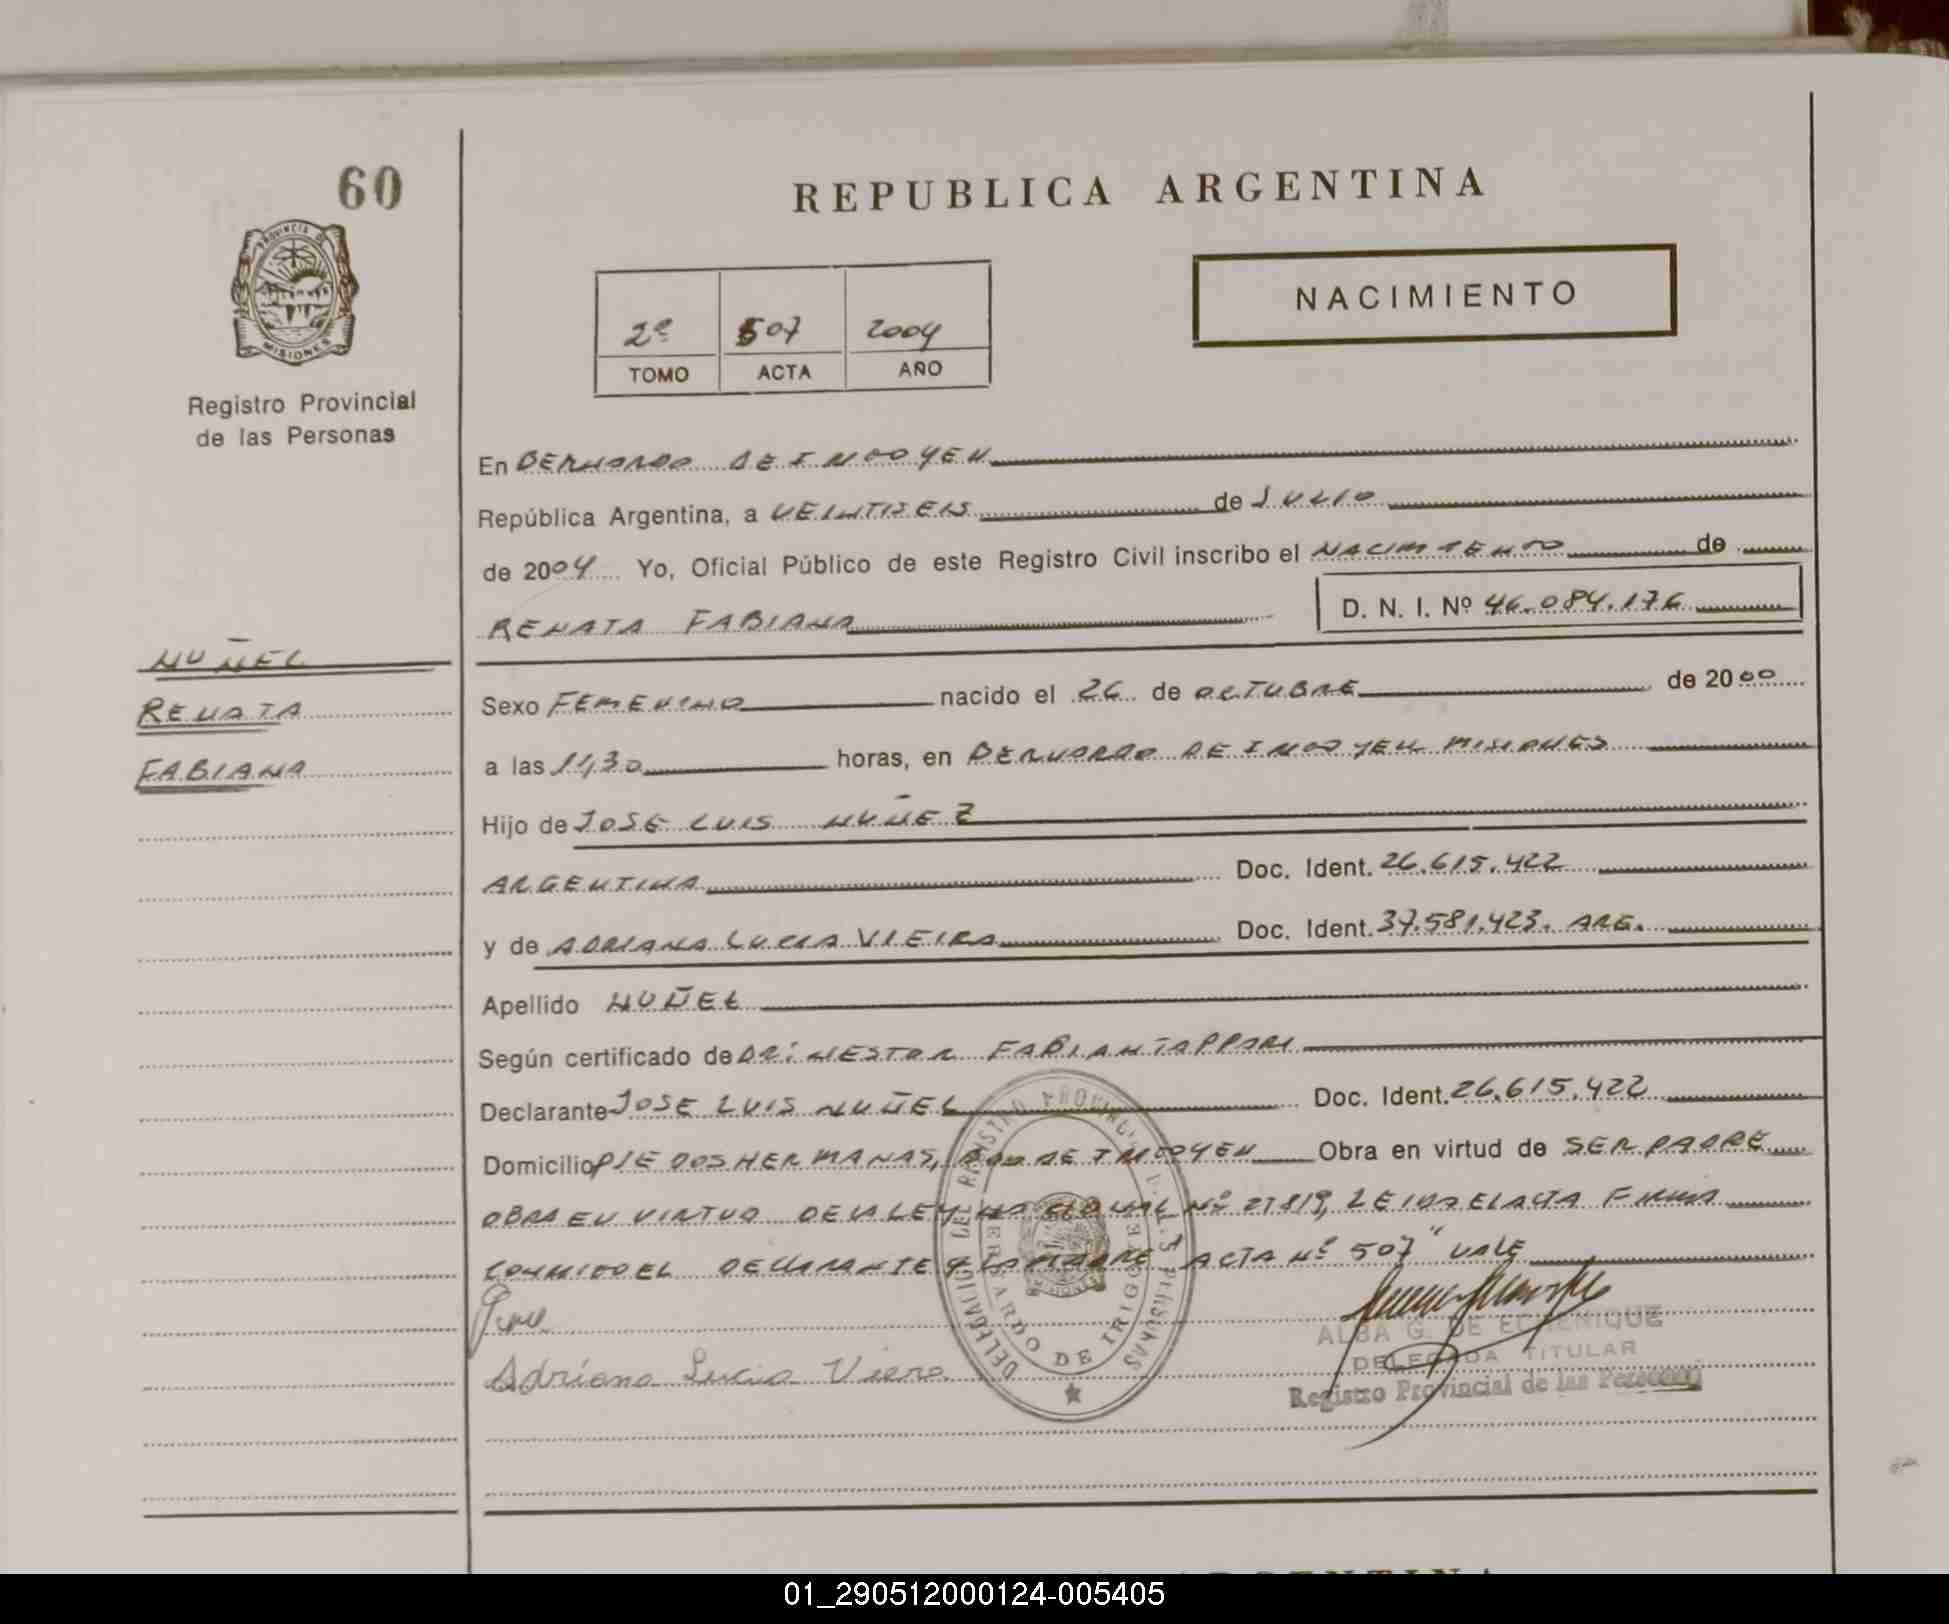 60
REPUBLICA ARGENTINA
PROVINCIA DE
MISIONES
NACIMIENTO
2º 507 2004
TOMO ACTA AÑO
Registro Provincial
de las Personas
En BERNARDO DE IRIGOYEN
República Argentina, a VEINTISEIS de JULIO
de 2004 Yo, Oficial Público de este Registro Civil inscribo el NACIMIENTO de
RENATA FABIANA D. N. I. Nº 46.084.176
NUÑEZ
RENATA
FABIANA
Sexo FEMENINO nacido el 26 de OCTUBRE de 2000
a las 11,30 horas, en BERNARDO DE IRIGOYEN MISIONES
Hijo de JOSE LUIS NUÑEZ
ARGENTINA Doc. Ident. 26.615.422
y de ADRIANA LUCIA VIEIRA Doc. Ident. 37.581.423. ARG.
Apellido NUÑEZ
Según certificado de DR: NESTOR FABIAN
Declarante JOSE LUIS NUÑEZ Doc. Ident. 26.615.422
Domicilio PJE DOS HERMANAS, BDO DE IRIGOYEN Obra en virtud de SER PADRE
OBRA EN VIRTUD DE LA LEY NACIONAL Nº LEIDA EL ACTA FIRMA
CONMIGO EL DECLARANTE Y LA MADRE "ACTA Nº 507" VALE
Adriana Lucia Viera
DELEGACION DEL REGISTRO PROVINCIAL DE LAS PERSONAS
BERNARDO DE IRIGOYEN
MISIONES
ALBA G. DE ECHENIQUE
DELEGADA TITULAR
Registro Provincial de las Personas
01_290512000124-005405